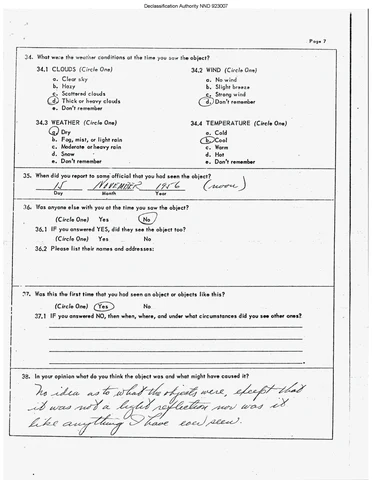 Declassification Authority NND 923007
Page 7
34. What were the weather conditions at the time you saw the object?
34.1 CLOUDS (Circle One) 34.2 WIND (Circle One)
a. Clear sky a. No wind
b. Hazy b. Slight breeze
c. Scattered clouds c. Strong wind
d. Thick or heavy clouds d. Don't remember
e. Don't remember
34.3 WEATHER (Circle One) 34.4 TEMPERATURE (Circle One)
a. Dry a. Cold
b. Fog, mist, or light rain b. Cool
c. Moderate or heavy rain c. Warm
d. Snow d. Hot
e. Don't remember e. Don't remember
35. When did you report to some official that you had seen the object?
15 NOVEMBER 1956 (noon)
Day Month Year
36. Was anyone else with you at the time you saw the object?
(Circle One) Yes No
36.1 IF you answered YES, did they see the object too?
(Circle One) Yes No
36.2 Please list their names and addresses:
37. Was this the first time that you had seen an object or objects like this?
(Circle One) Yes No
37.1 IF you answered NO, then when, where, and under what circumstances did you see other ones?
38. In your opinion what do you think the object was and what might have caused it?
No idea as to what the objects were, except that
it was not a light reflection nor was it
like anything I have ever seen.